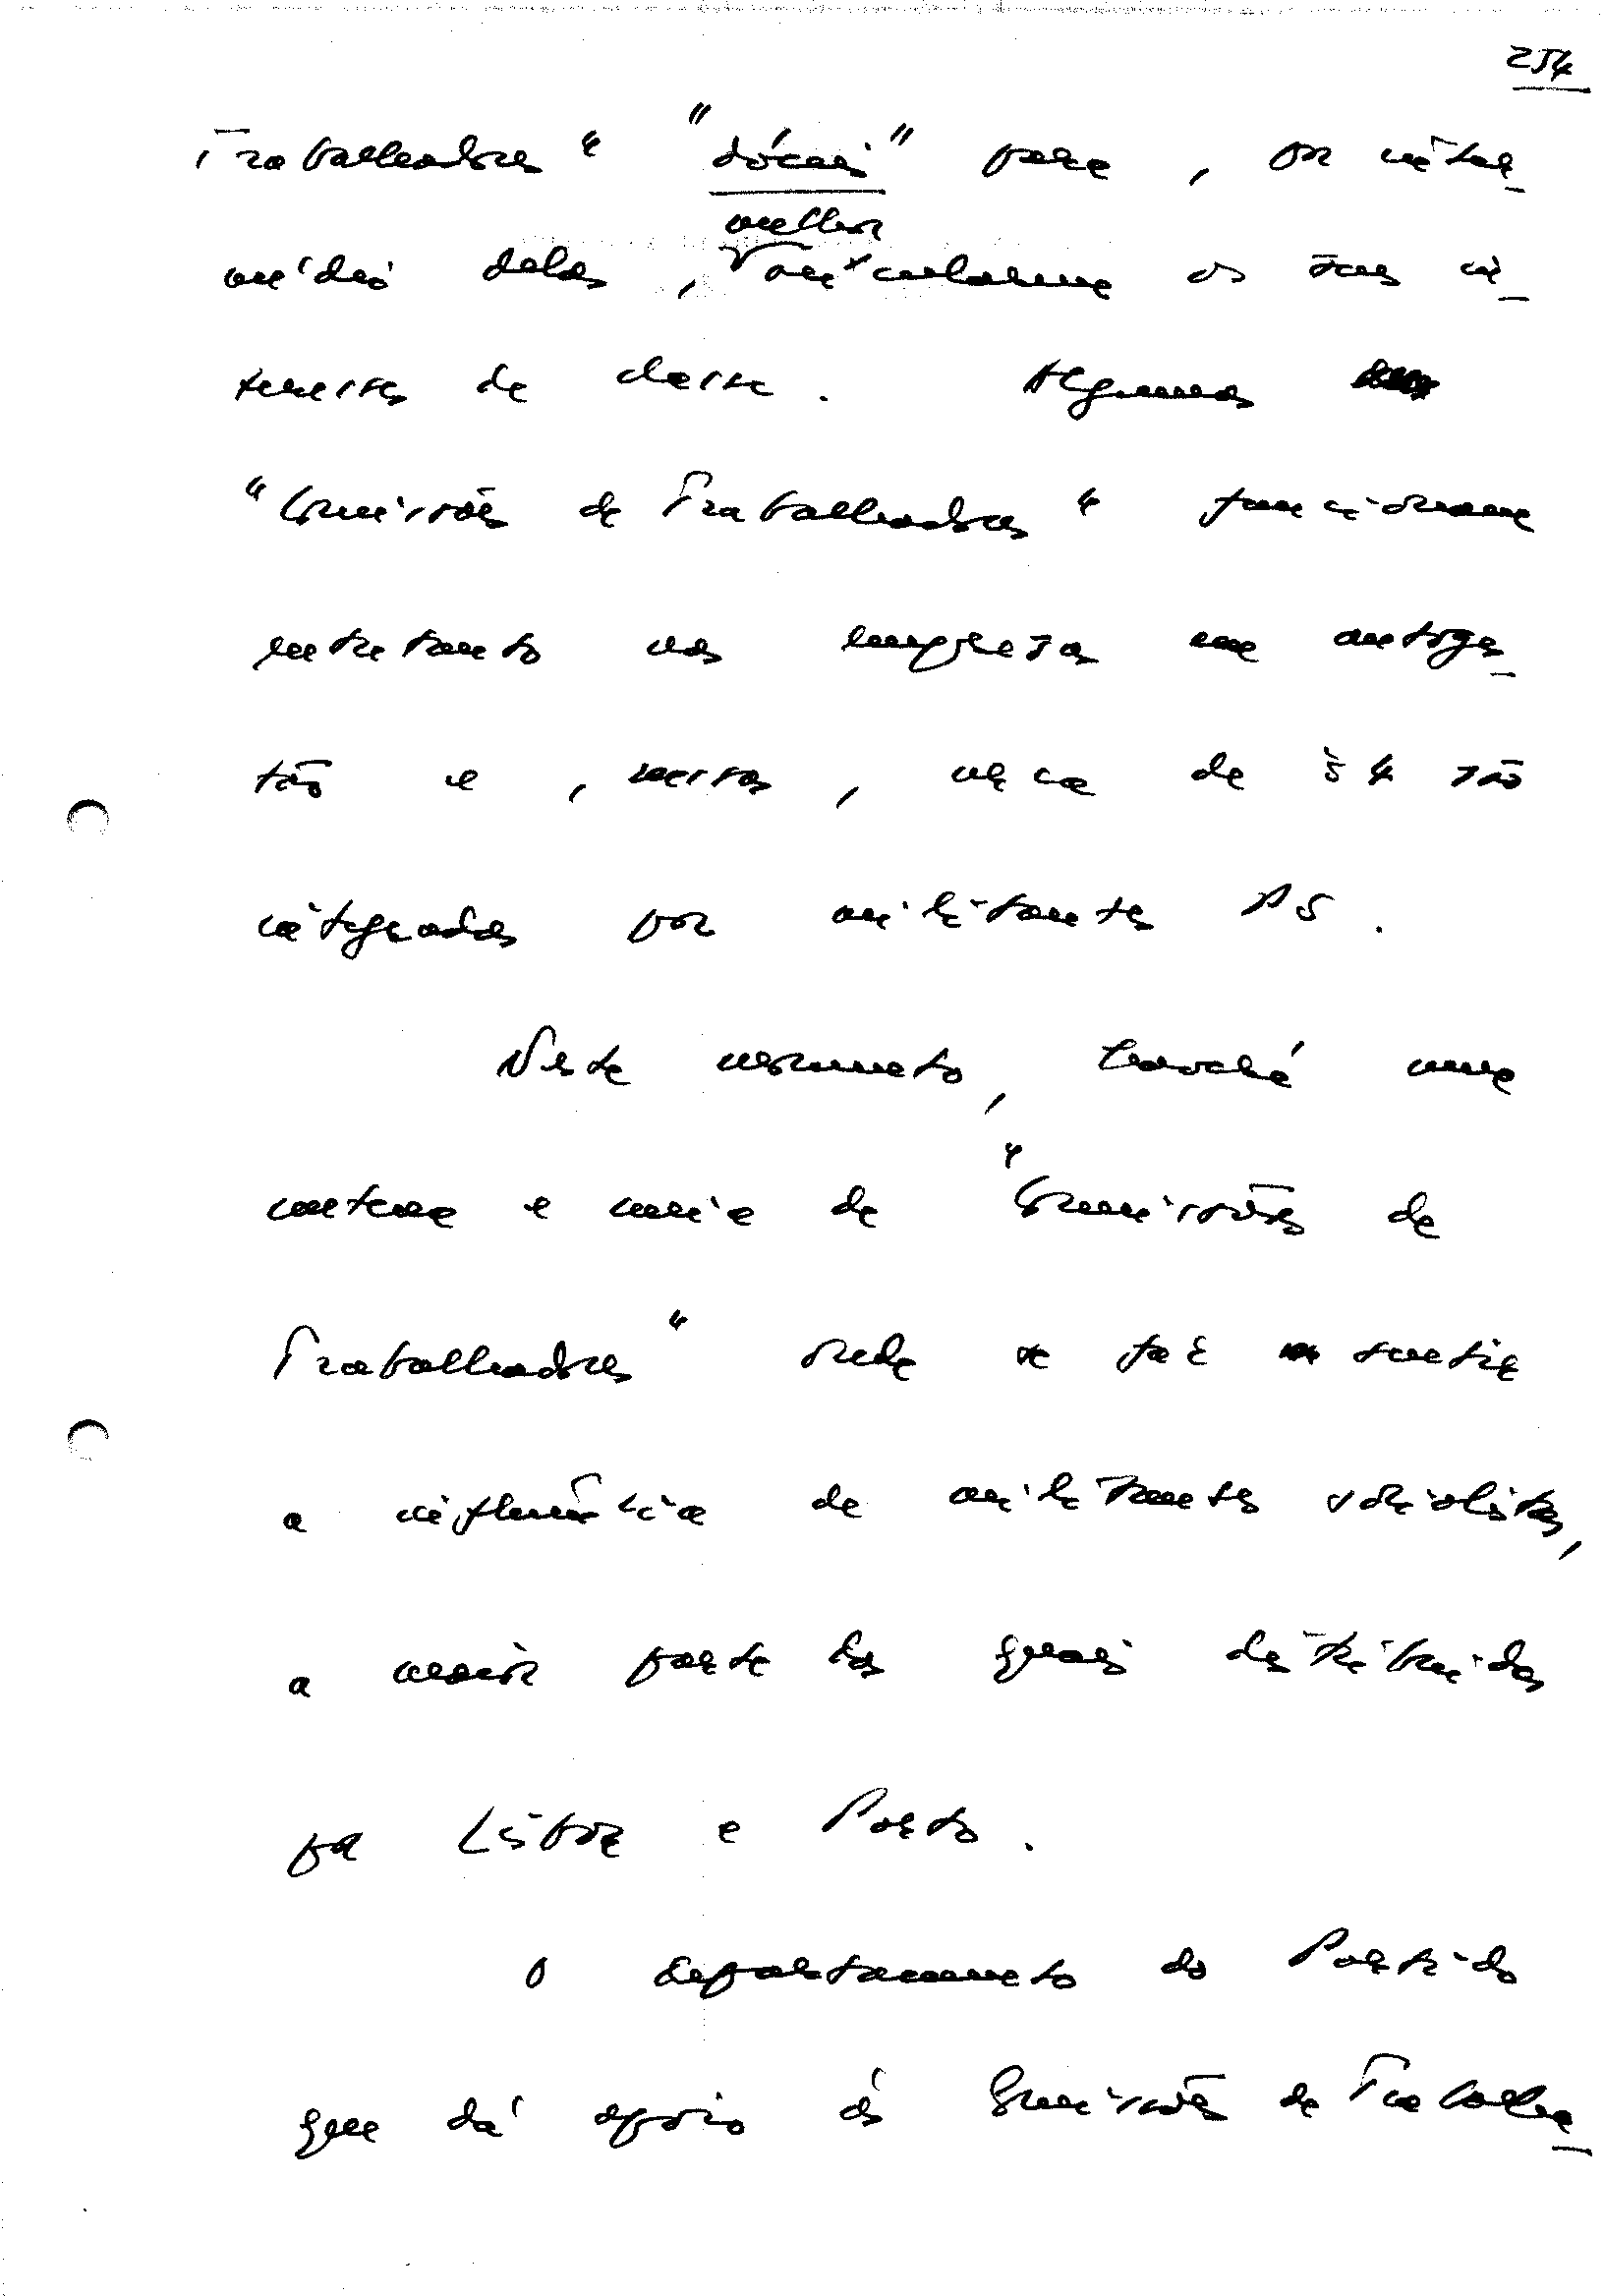 254
Trabalhadores" "dóceis" para, por inter_
médio delas, melhor manipularem os seus in_
teresses de classe. Algumas
"Comissões de Trabalhadores" funcionam
entretanto nas empresas em autoges_
tão e, nessas, cerca de 54 são
integradas por militantes PS.
Neste momento, haverá uma
centena e meia de "Comissões de
Trabalhadores" onde se faz sentir
a influência de militantes socialistas,
a maior parte das quais distribuídas
por Lisboa e Porto.
O departamento do Partido
que dá apoio às Comissões de Trabalha_